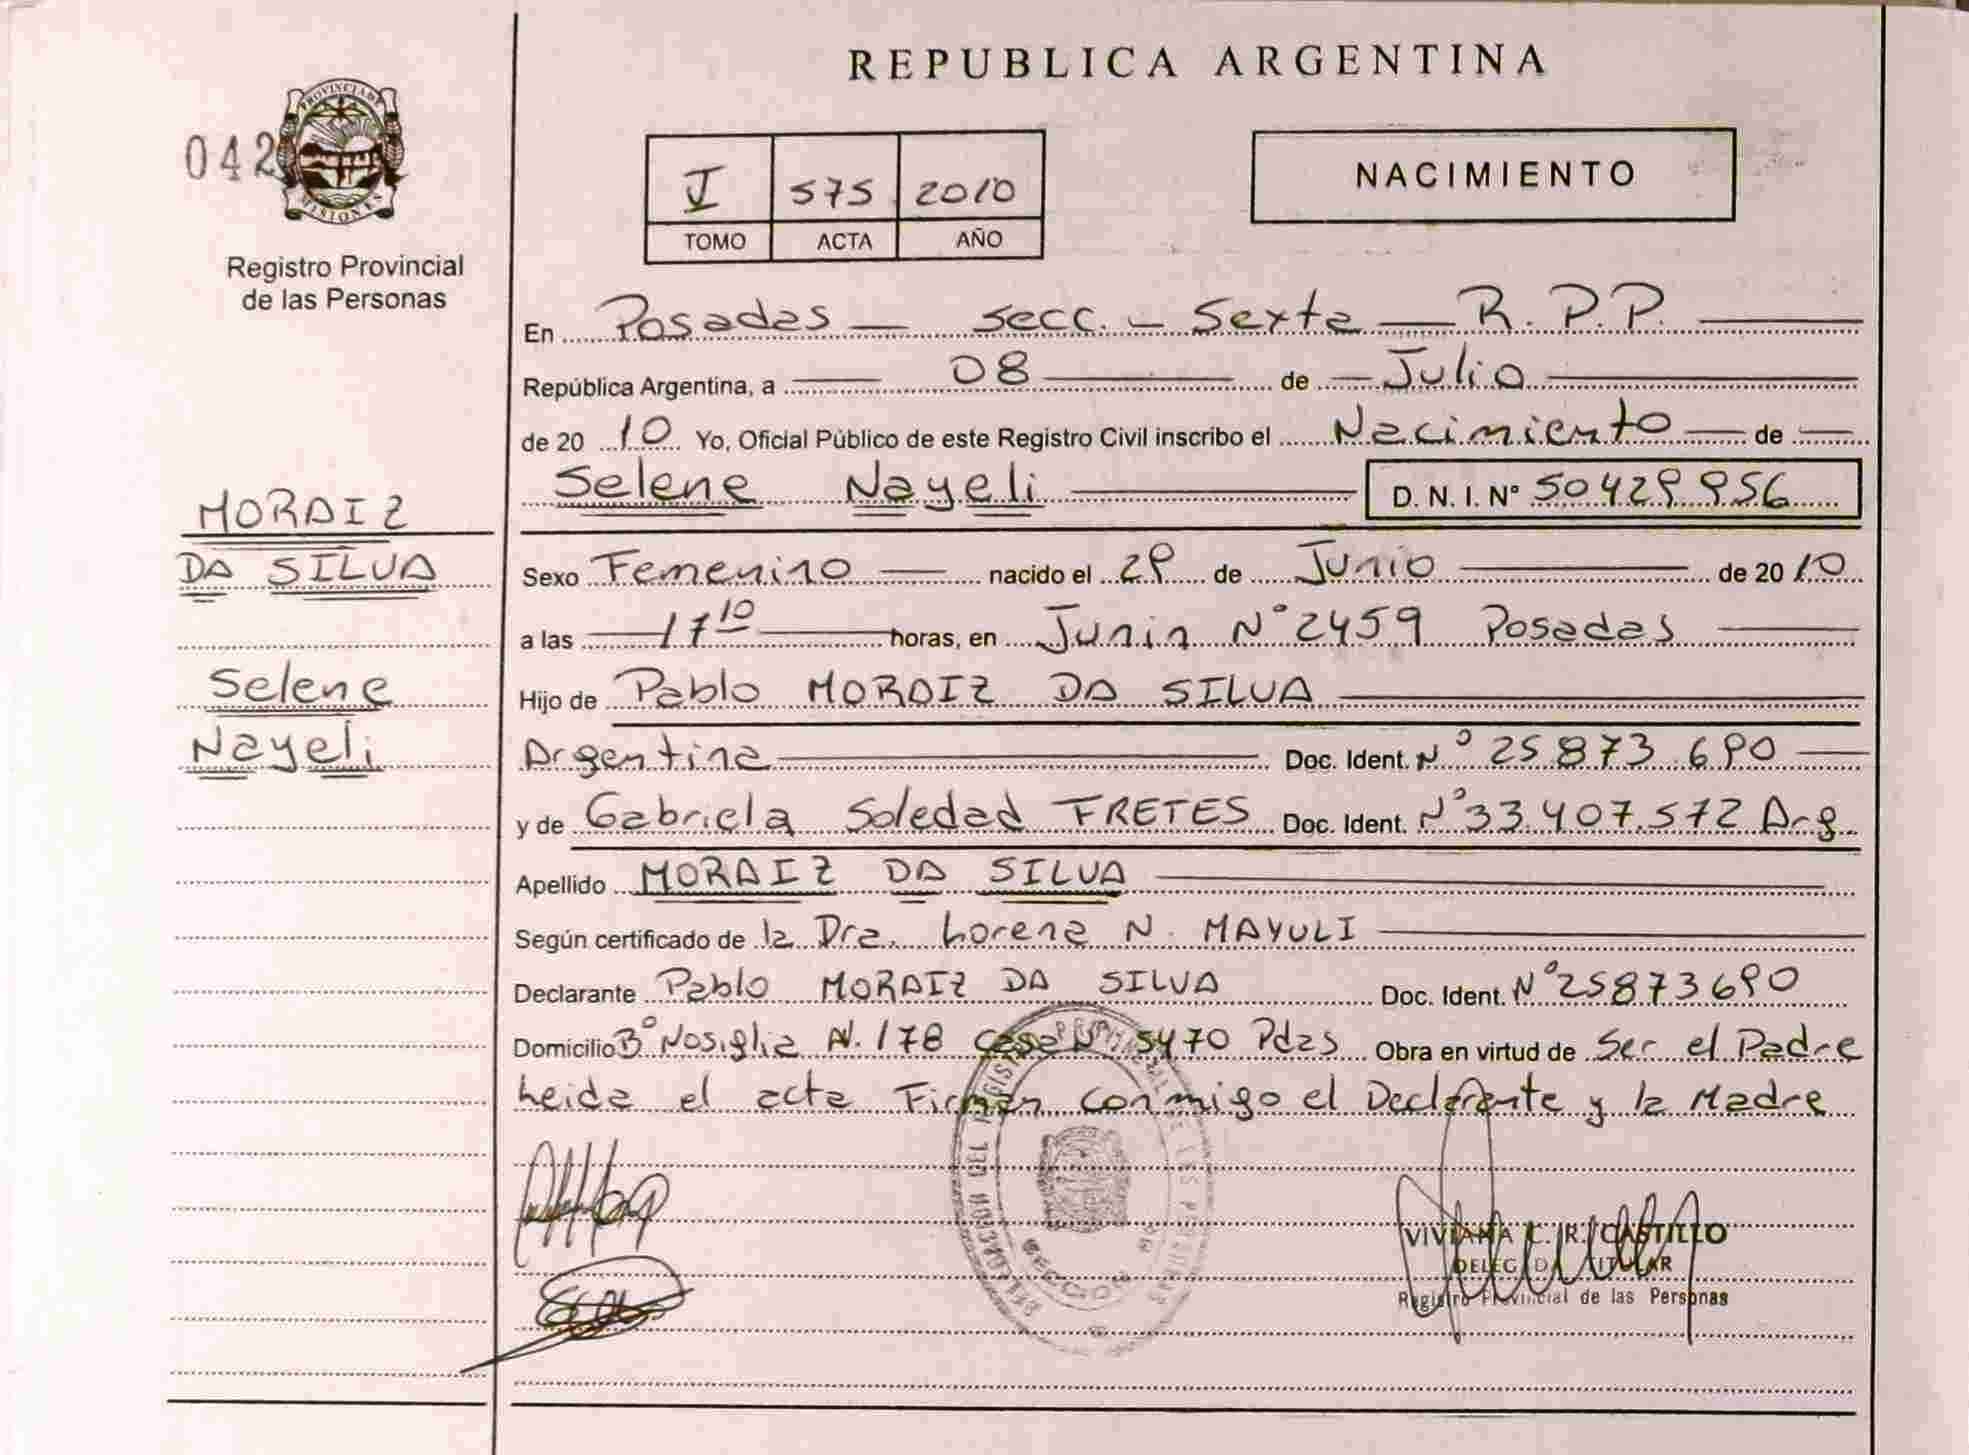 REPUBLICA ARGENTINA
042
PROVINCIA DE
MISIONES
Registro Provincial
de las Personas
I 575 2010
TOMO ACTA AÑO
NACIMIENTO
En Posadas — secc. — Sexta — R.P.P.
República Argentina, a 08 de Julio
de 2010 Yo, Oficial Público de este Registro Civil inscribo el Nacimiento de
Selene Nayeli D. N. I. N° 50429956
MORAIZ
DA SILVA
Selene
Nayeli
Sexo Femenino nacido el 29 de Junio de 2010
a las 17 10 horas, en Junin N° 2459 Posadas
Hijo de Pablo MORAIZ DA SILVA
Argentina Doc. Ident. N° 25 873 690
y de Gabriela Soledad FRETES Doc. Ident. N° 33.407.572 Arg.
Apellido MORAIZ DA SILVA
Según certificado de la Dra. Lorena N. MAYULI
Declarante Pablo MORAIZ DA SILVA Doc. Ident. N° 25873690
Domicilio B° Nosiglia N. 178 Casa N° 5470 Pdas Obra en virtud de Ser el Padre
Leida el acta Firman conmigo el Declarante y la Madre
VIVIANA C. R. CASTILLO
DELEGADA TITULAR
Registro Provincial de las Personas